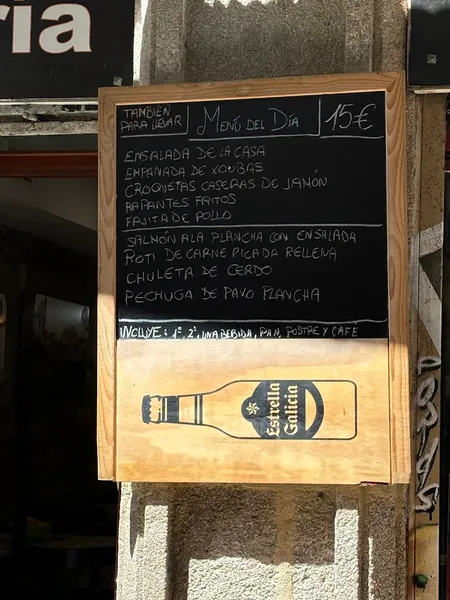 ria
TAMBIEN
PARA LLEVAR
MENÚ DEL DÍA
15€
ENSALADA DE LA CASA
EMPANADA DE XOUBAS
CROQUETAS CASERAS DE JAMÓN
RAPANTES FRITOS
FAJITA DE POLLO
SALMÓN A LA PLANCHA CON ENSALADA
ROTI DE CARNE PICADA RELLENA
CHULETA DE CERDO
PECHUGA DE PAVO PLANCHA
INCLUYE: 1º, 2º, UNA BEBIDA, PAN, POSTRE Y CAFE
Estrella
Galicia